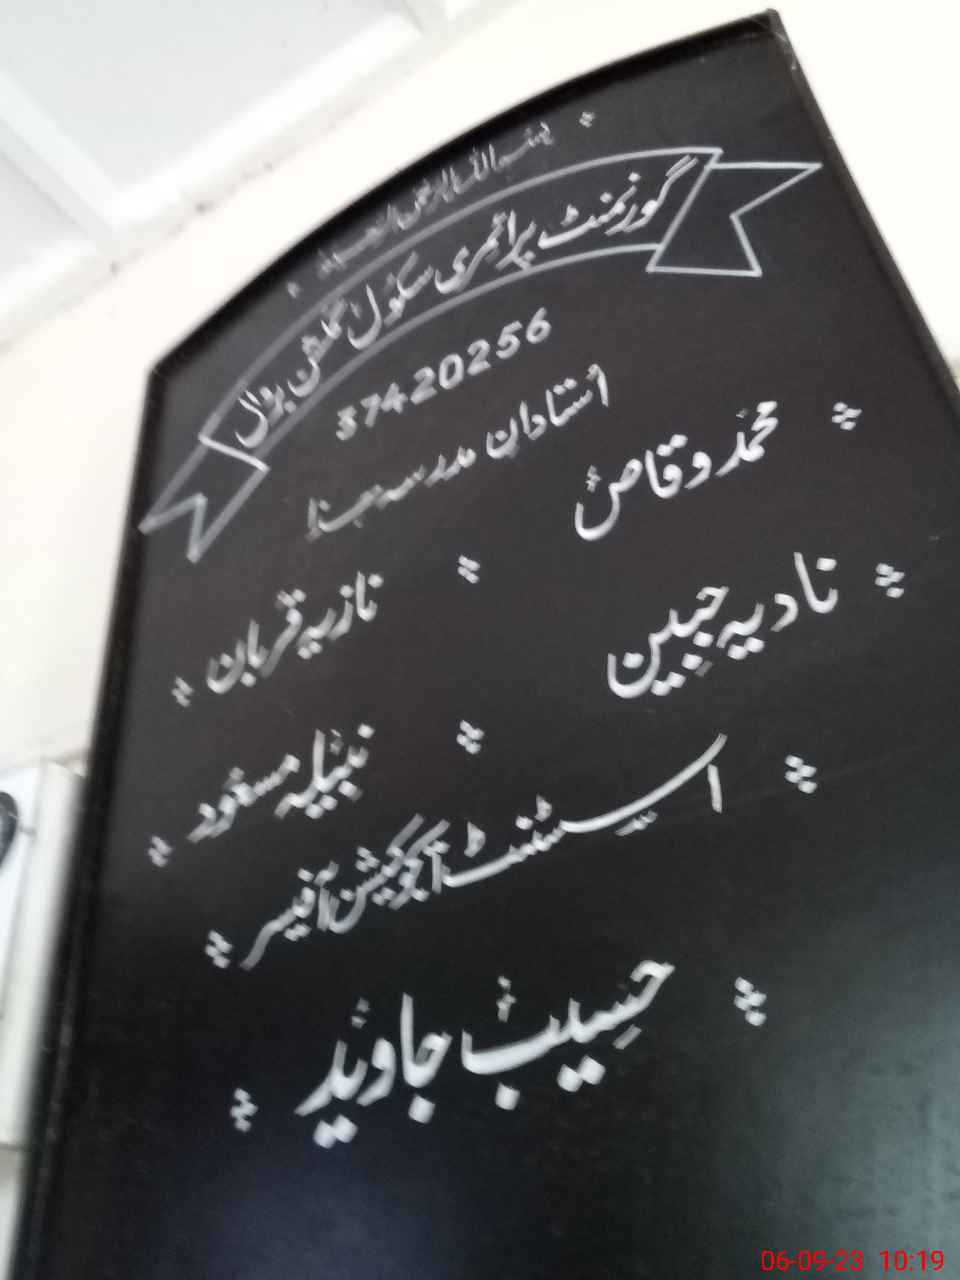 بسم اللہ الرحمٰن الرحیم
گورنمنٹ پرائمری سکول گلشن بڑل
37420256
استادان مدرسہ ہذا
محمد وقاص
نادیہ جبین
نازیہ قربان
نبیلہ مسعود
اسسٹنٹ ایجوکیشن آفیسر
حسیب جاوید
06-09-23 10:19